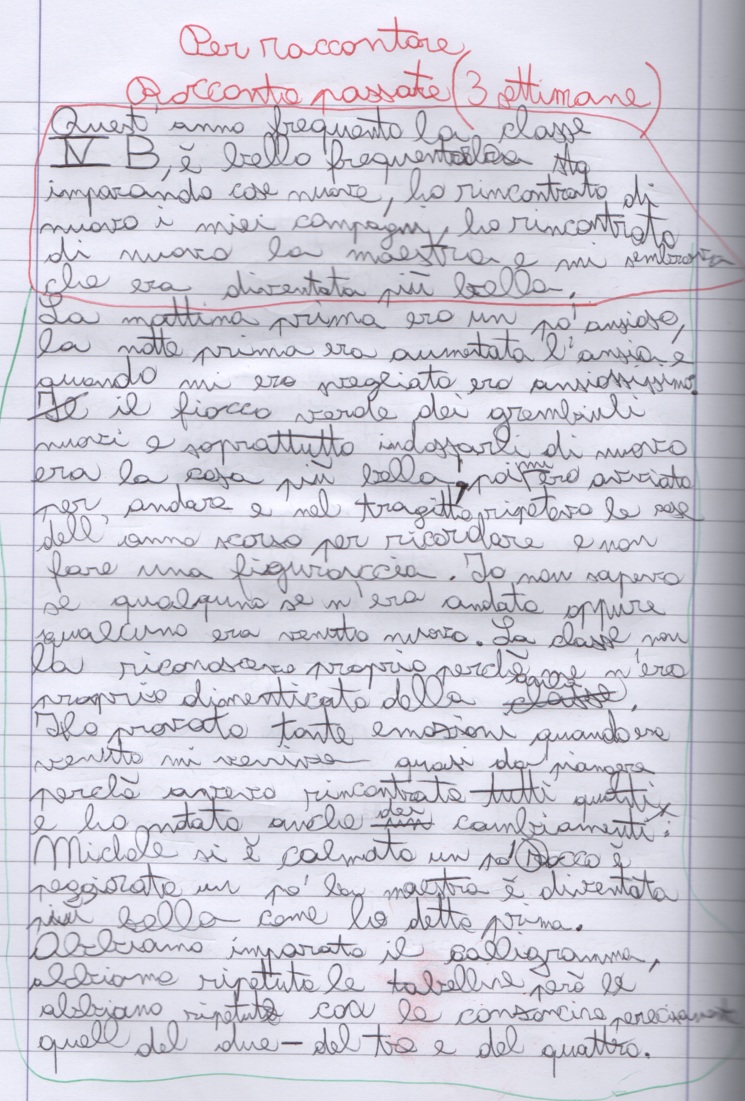 Per raccontare
Racconto passate (3 settimane)
Quest'anno frequento la classe
IV B, è bello frequentarla sto
imparando cose nuove, ho rincontrato di
nuovo i miei compagni, ho rincontrato
di nuovo la maestra e mi sembrava
che era diventata più bella.
La mattina prima ero un po' ansioso,
la notte prima era aumentata l'ansia e
quando mi ero svegliato ero ansiosissimo.
il fiocco verde dei grembiuli
nuovi e soprattutto indossarli di nuovo
era la cosa più bella, poi mi ero avviato
per andare e nel tragitto ripetevo le cose
dell'anno scorso per ricordare e non
fare una figuraccia. Io non sapevo
se qualquno se n'era andato oppure
qualcuno era venuto nuovo. La classe non
la riconoscevo proprio perchè me n'ero
proprio dimenticato della classe.
Ho provato tante emozioni quando ero
venuto mi veniva quasi da piangere
perchè avevo rincontrato tutti quanti
e ho notato anche dei cambiamenti:
Michele si è calmato un po' Rocco è
peggiorato un po' la maestra è diventata
più bella come ho detto prima.
Abbiamo imparato il calligramma,
abbiamo ripetuto le tabelline però le
abbiamo ripetute con le canzoncine
quell del due - del tre e del quattro.